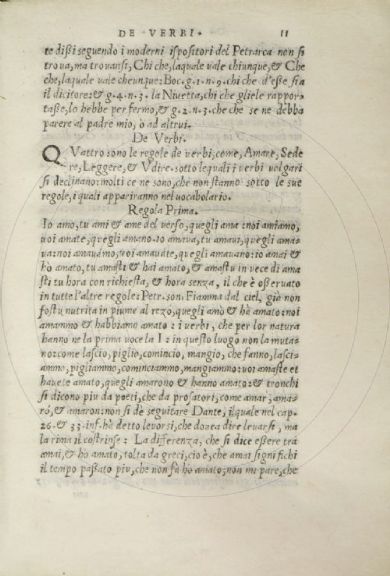 DE VERBI. 11
te dißi seguendo i moderni ispositori del Petrarca non si
troua, ma trouansi, Chi che, laquale vale chiunque, & Che
che, laquale vale cheunque: Boc. g. 1. n. 9. chi che d'eße, sia
il dicitore: & g. 4. n. 3. la Niuetta, chi che gliele rappor
taße, lo hebbe per fermo, & g. 2. n. 3. che che se ne débba
parere al padre mio, ò ad altrui.
De Verbi.
QVattro sono le regole de verbi; come, Amare, Sede
re, Leggere, & Vdire. sotto lequali i verbi volgari
si declinano: molti ce ne sono, che non stanno sotto le sue
regole, i quali appariranno nel vocabolario.
Regola Prima.
Io amo, tu ami & ame del verso, quegli ama: noi amiamo,
voi amate, quegli amano. io amaua, tu amaui, quegli ama-
ua: noi amauamo, voi amauate, quegli amauano: io amai &
hò amato, tu amasti & hai amato, & amastu in vece di ama
sti tu hora con richiesta, & hora senza, il che è oßeruato
in tutte l'altre regole: Petr. son. Fiamma dal ciel, già non
fostu nutrita in piume al rezo, quegli amò & hà amato: noi
amammo & habbiamo amato: i verbi, che per lor natura
hanno ne la prima voce la I: in questo luogo non la muta-
no: come lascio, piglio, comincio, mangio, che fanno, lasci-
ammo, pigliammo, cominciammo, mangiammo: voi amaste et
hauete amato, quegli amarono & hanno amato: & tronchi
si dicono piu da poeti, che da prosatori, come amar, ama-
rò, & amaron: non si dè seguitare Dante, ilquale nel cap.
26. & 33. inf. hà detto leuorsi, che douea dire leuarsi, ma
la rima il costrinse: La differenza, che si dice eßere trà
amai, & hò amato, tolta da greci; cio è, che amai significhi
il tempo paßato piu, che non fà hò amato; non mi pare, che